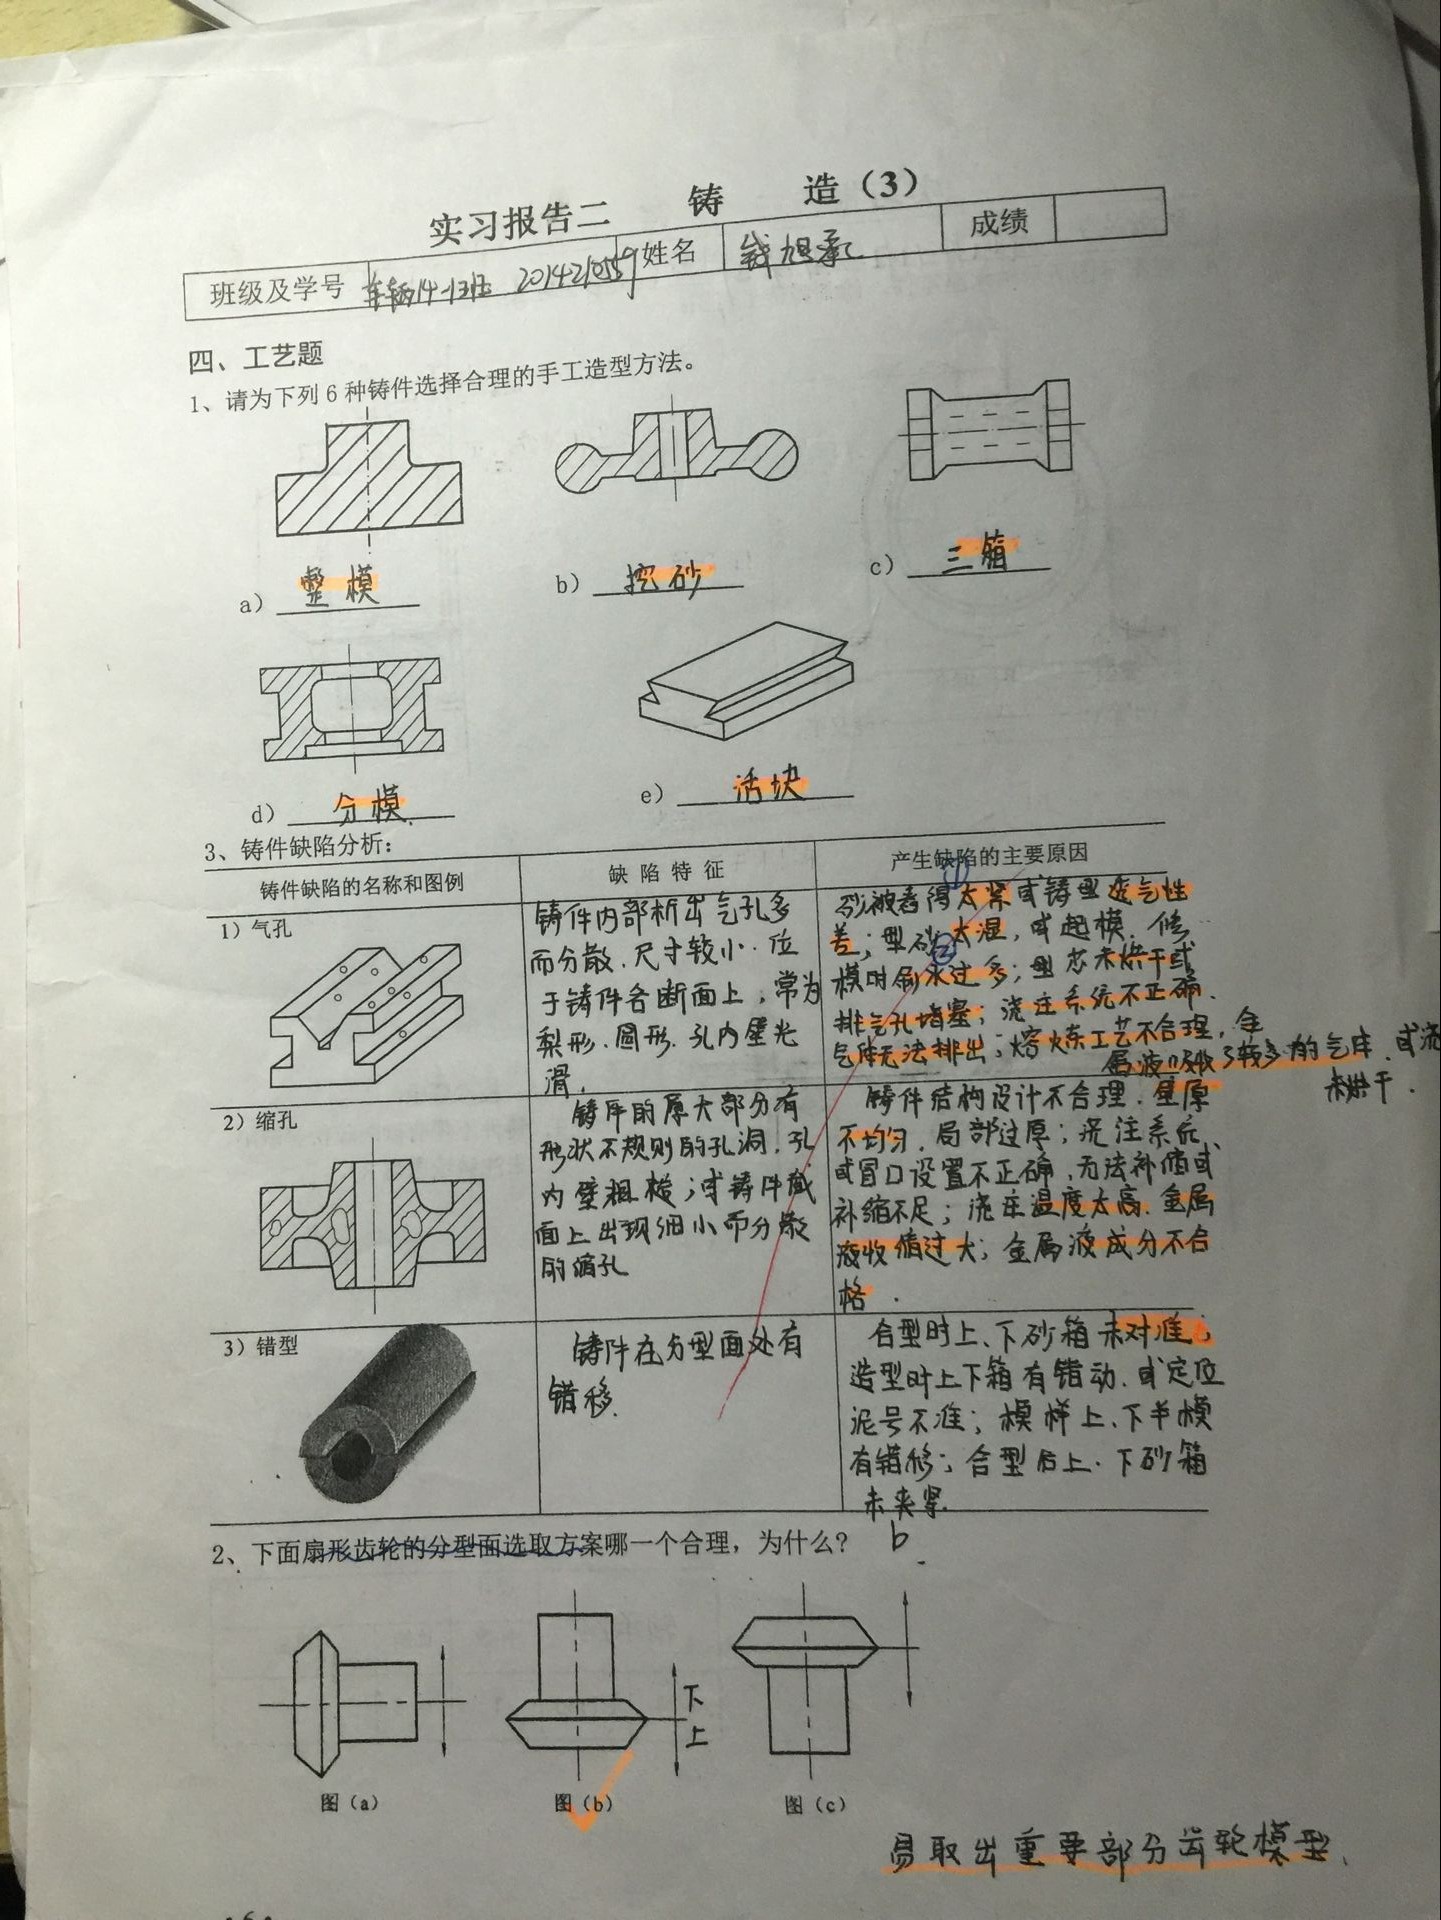 实习报告二 铸 造（3）
班级及学号 车辆14-1班 姓名 钱旭承 成绩
四、工艺题
1、请为下列6种铸件选择合理的手工造型方法。
a） 整模
b） 挖砂
c） 三箱
d） 分模.
e） 活块
3、铸件缺陷分析：
铸件缺陷的名称和图例 缺 陷 特 征 产生缺陷的主要原因
1）气孔
铸件内部析出气孔多
而分散.尺寸较小.位
于铸件各断面上，常为
梨形.圆形.孔内壁光
滑.
①
砂被舂得太紧或铸型透气性
差；型砂太湿，或起模.修
②
模时刷水过多；型芯未烘干或
排气孔堵塞；浇注系统不正确.
气体无法排出；熔炼工艺不合理，金
属液吸收了较多的气体.或浇
未烘干.
2）缩孔
铸件的厚大部分有
形状不规则的孔洞.孔
内壁粗糙；或铸件截
面上出现细小而分散
的缩孔
铸件结构设计不合理.壁厚
不均匀.局部过厚；浇注系统
或冒口设置不正确.无法补缩或
补缩不足；浇注温度太高.金属
液收缩过大；金属液成分不合
格.
3）错型
铸件在分型面处有
错移.
合型时上、下砂箱未对准；
造型时上下箱有错动.或定位
泥号不准；模样上、下半模
有错移；合型后上、下砂箱
未夹紧.
2、下面扇形齿轮的分型面选取方案哪一个合理，为什么？ b.
下
上
图（a） 图（b） 图（c）
易取出重要部分齿轮模型.
·6·